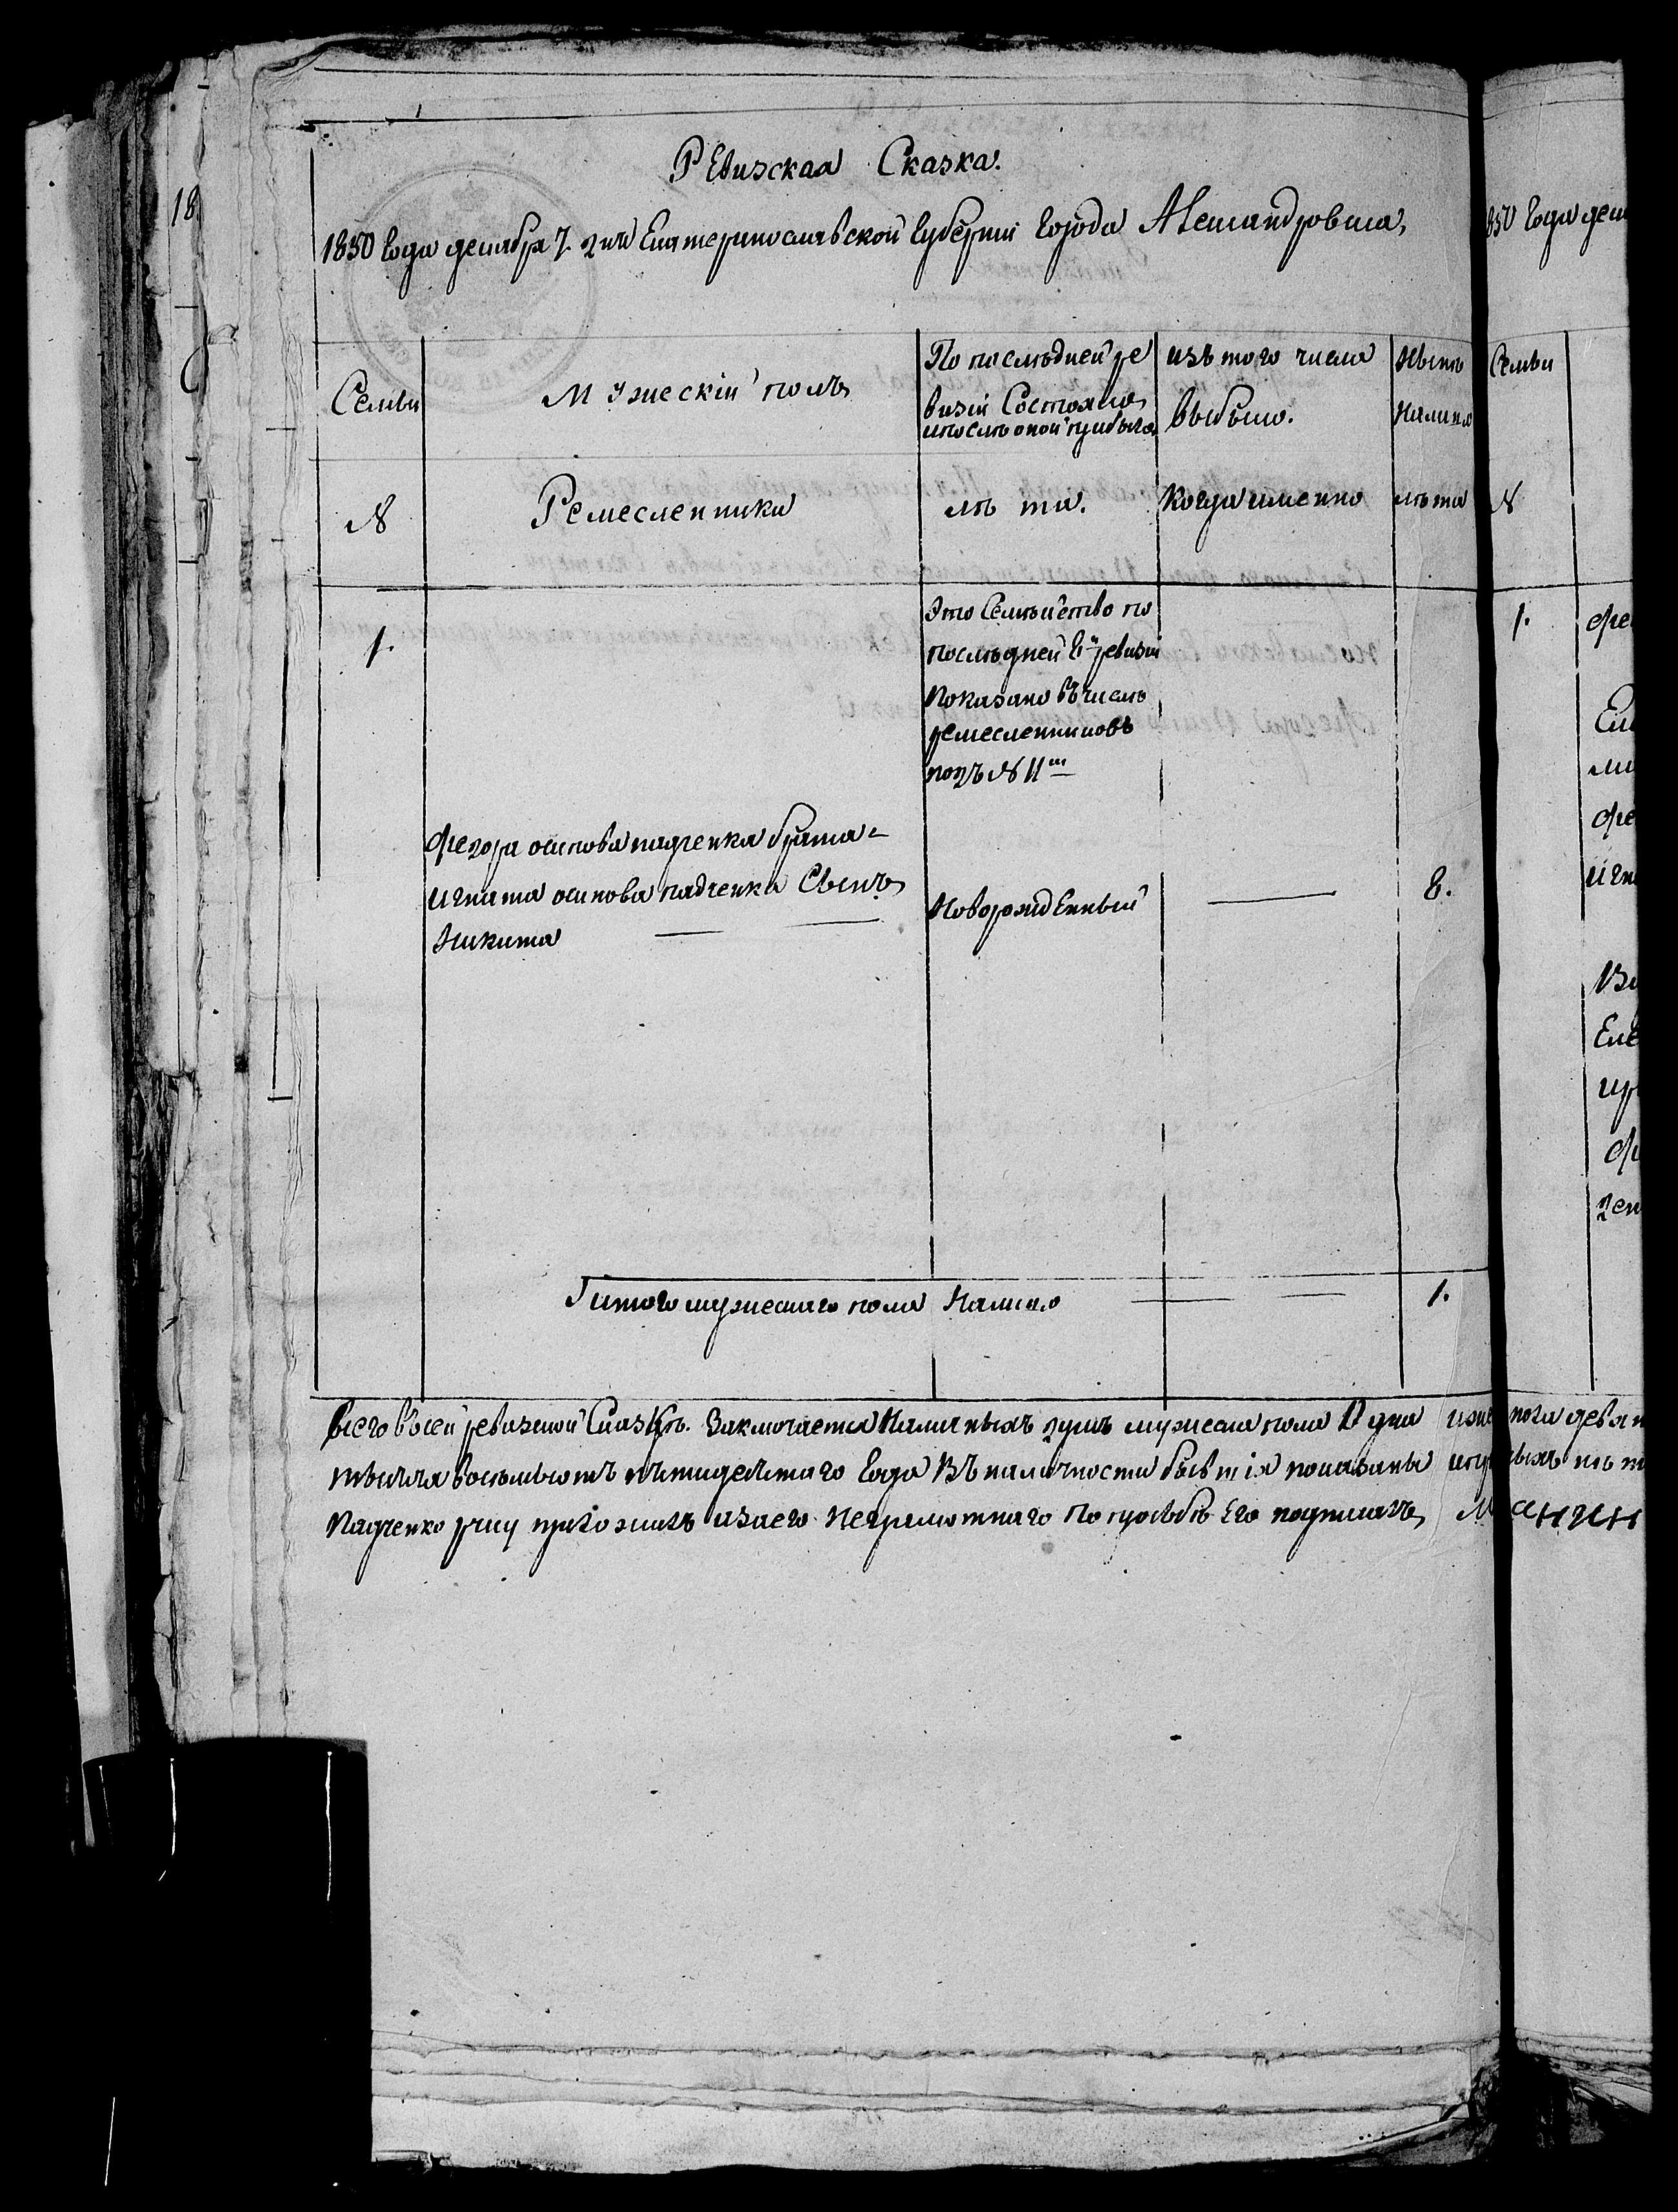 18
Ревизская Сказка.
1850 года декабря 7 дня Екатеринославской губернии города Александровска,
Семьи
Мужеский полъ
По последней ре
визіи Состояло
и после оной прибыло
изъ того числа
выбыло.
Ныне
налицо
№
Ремесленники
лѣ та.
Когда именно
лѣта
1.
Это Семейство по
последней 8й ревизіи
показано въ числе
ремесленниковъ
подъ № 11м
Федора осипова падченка брата
игната осипова падченка Сынъ
Никита
Новорожденный
8.
Итого мужескаго пола Налицо
1.
Всего в сей ревизской Сказке. Заключается Наличныхъ душъ мужеска пола одна
тысяча восемьсотъ пятидесятаго года Въ наличности бывшія показаны
Падченко руку приложилъ а за его неграмотнаго по прозьбе его подписалъ
850 года дек
Семьи
№
1.